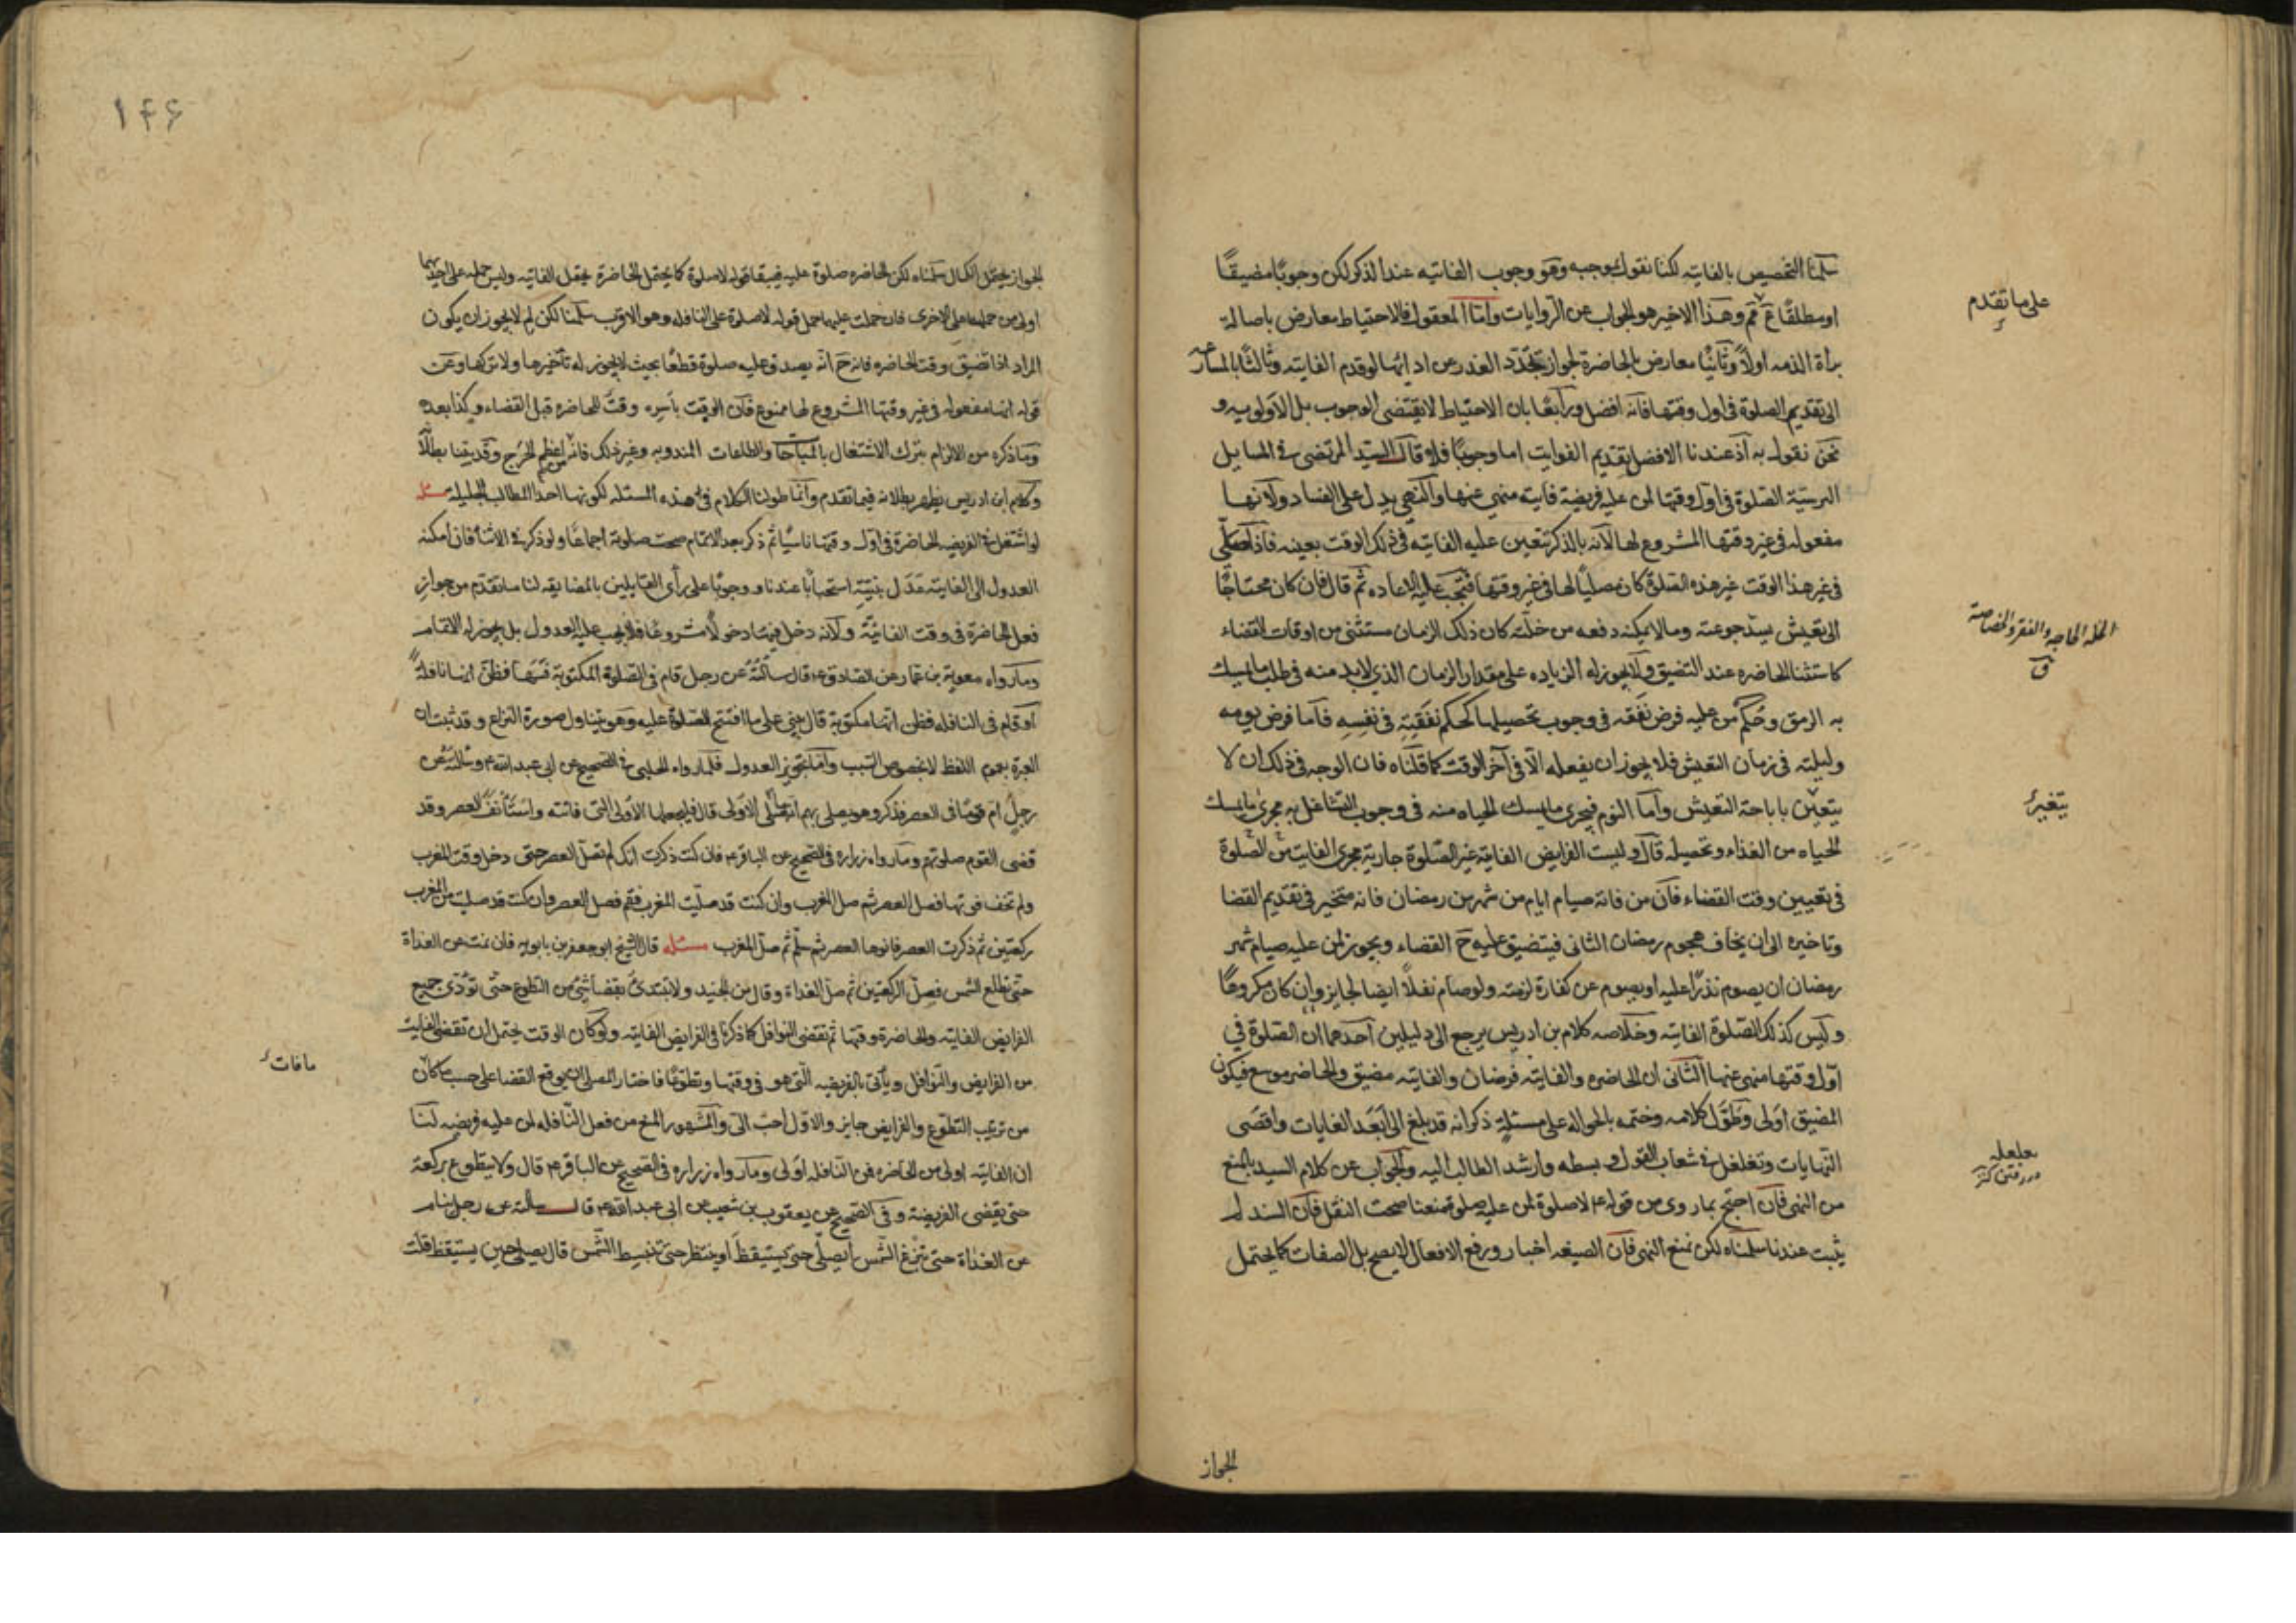 سلمنا التخصيص بالفايته لكنا نقول بموجبه وهو وجوب الفايته عند الذكر لكن وجوبًا مضيقًا
او مطلقًا عَ ثَم وهذا الاخير هو الجواب عن الروايات وامّا المعقول فالاحتياط معارض باصالة
برأة الذمه اولاً وثانيًا معارض بالحاضرة لجواز تجدّد العذر عن ادائها لو قدم الفايته وثالثًا بالمسارعه
الى تقديم الصلوة فى اول وقتها فانه افضل ورابعًا بان الاحتياط لا يقتضى الوجوب بل الاولويه و
نحن نقول به اذ عندنا الافضل تقديم الفوايت اما وجوبًا فلا وقال السيد المرتضى فى المسايل
الرسيّة الصّلوة فى اوّل وقتها لمن عليه فريضة فايته منهى عنها والنهى يدل على الفساد ولانها
مفعوله فى غير وقتها المشروع لها لانه بالذكر تتعين عليه الفايته فى ذلك الوقت بعينه فاذا صلّى
فى غير هذا الوقت غير هذه الصّلوة كان مصليًا لها فى غير وقتها فتجب عليه الاعاده ثمّ قال فان كان محتاجًا
الى تعيّش يسدّ جوعته وما لا يمكنه دفعه من خلّته كان ذلك الزمان مستثنى من اوقات القضاء
كاستثنا الحاضره عند التضيق ولا يجوز له الزياده على مقدار الزمان الذى لا بد منه فى طلب ما يمسك
به الرمق وحُكم من عليه فرض نَفَقه فى وجوب تحصيلها كحكم نفقتِه فى نَفسِه فامّا فرض يومه
وليلته فى زمان التعيش فلا يجوز ان يفعله الّا فى آخر الوقت كما قلناه فان الوجه فى ذلك ان لا
يتعيّن باباحة التعيش وامّا النوم فيجرى ما يمسك الحياه منه فى وجوب التشاغل به مجرى ما يمسك
الحياه من الغذاء وتحصيله قال وليست الفرايض الفايته غير الصّلوة جارية مجرى الفايت من الصّلوة
فى تعيين وقت القضاء فانّ من فاته صيام ايام من شهر من رمضان فانه متخير فى تقديم القضا
وتاخيره الى ان يخاف هجوم رمضان الثانى فيتضيق عليه حَ القضاء ويجوز لمن عليه صيام شهر
رمضان ان يصوم نذرًا عليه او يصوم عن كفارة لزمته ولو صام نفلاً ايضا لجايز وان كان مكروهًا
وليس كذلك الصّلوة الفايته وخلاصه كلام بن ادريس يرجع الى دليلين احدهما ان الصّلوة فى
اوّل وقتها منهى عنها الثانى ان الحاضره والفايتة فرضان والفايته مضيق والحاضر موسع فيكون
المضيق اولى وطوّل كلامه وختمه بالحواله على مسئلة ذكر انه قد بلغ الى ابعد الغايات واقصى
النّهايات وتغلغل فى شعاب القول وبسطه وارشد الطالب اليه والجواب عن كلام السيد بالمنع
من النهى فان احتج بما روى من قوله ع لا صلوة لمن عليه صلوة منعنا صحت النقل فان السند لم
يثبت عندنا سلمناه لكن نمنع النهى فان الصيغه اخبار ورفع الافعال لا يصح بل الصفات كما يحتمل
على ما تقدم
الخله الحاجة والفقر والخصاصة
ق
يتغير
الجواز
۱۴۶
الجواز يحتمل الكمال سلمناه لكن الحاضره صلوة عليه فيبقا قوله لا صلوة كما يحتمل الحاضرة يحتمل الفايته وليس حمله على احديهما
اولى من حملها على الاخرى فان حملت عليهما حمل قوله لا صلوة على النافله وهو الاقرب سلّمنا لكن لم لا يجوز ان يكون
المراد اذا تضيق وقت الحاضره فانه حَ انه يصدق عليه صلوة قطعًا بحيث لا يجوز له تأخيرها ولا تركها وعن
قوله انها مفعوله فى غير وقتها المشروع لها ممنوع فان الوقت باسره وقت للحاضره قبل القضاء وكذا بعده
وما ذكره من الالزام بترك الاشتغال بالمباحات والطاعات المندوبه وغير ذلك فانه من اعظم الحرج وقد بينا بطلانه
وكلام ابن ادريس يظهر بطلانه فيما تقدم وانّما طولنا الكلام فى هذه المسئله لكونها احد المطالب الجليلة مسئله
لو اشتغل فى الفريضه الحاضرة فى اوّل وقتها ناسيًا ثم ذكر بعد الاتمام صحت صلوته اجماعًا ولو ذكر فى الاثنا فان امكنه
العدول الى الفايته عَدَل بنيّته استحبابًا عندنا ووجوبًا على رأى القايلين بالمضايقه لنا ما تقدّم من جواز
فعل الحاضرة فى وقت الفايتة ولانه دخل فيها دخولاً مشروعًا فلا يجب عليه العدول بل يجوز له الاتمام
وما رواه معوية بن عمار عن الصادق ع قال سألتُهُ عن رجل قام فى الصّلوة المكتوبة فسَهَا فظنّ انها نافلةً
او قام فى النافله فظن انها مكتوبة قال يبنى على ما افتتح الصّلوة عليه وهو يتناول صورة النزاع وقد ثبت ان
العبرة بعموم اللفظ لا بخصوص السّبب وامّا تجويز العدول فلما رواه الحلبى فى الصّحيح عن ابى عبد الله ع وسألته عن
رجلٍ امّ قومًا فى العصر فذكر وهو يصلى بهم انه لم يصلّى الاولى قال فليجعلها الاولى التى فاتته واستأنف العصر وقد
قضى القوم صلوتهم وما رواه زراره فى الصّحيح عن الباقر ع فان كنت ذكرت انك لم تصلّ العصر حتى دخل وقت المغرب
ولم تخف فوتها فصل العصر ثم صل المغرب وان كنت قد صلّيت المغرب فقم فصل العصر وان كنت قد صليت من المغرب
ركعتين ثم ذكرت العصر فانوها العصر ثم سلّم ثم صلّ المغرب مسئله قال الشيخ ابو جعفر بن بابويه فان نمت عن الغداة
حتى تطلع الشمس فصلّ الركعتين ثم صلّ الغداة وقال بن الجنيد ولا يبتدئ بقضاء شئ من التطوع حتى تؤدّى جميع
الفرايض الفايته والحاضرة وقتها ثم تقضى النوافل كما ذكرنا فى الفرايض الفايته ولو كان الوقت يحتمل ان تقضى الفايت
من الفرايض والنّوافل ويأتى بالفريضه الّتى هو فى وقتها وتطوّعها فاختار المصلى ان يوقع القضا على حسب ما كان
من ترتيب التطوّع والفرايض جايز والاوّل احبّ الىّ والمشهور المنع من فعل النّافله لمن عليه فريضه لنا
ان الفايته اولى من الحاضره فمن النّافله اولى وما رواه زراره فى الصّحيح عن الباقر ع قال ولا يتطوع بركعة
حتى يقضى الفريضة وفى الصّحيح عن يعقوب بن شعيب عن ابى عبد الله ع قال سألته عن رجل ينام
عن الغداة حتى تبزغ الشّمس أيصلّى حتى يستيقظ او ينتظر حتى تنبسط الشّمس قال يصلى حين يستيقظ قلت
ما فات